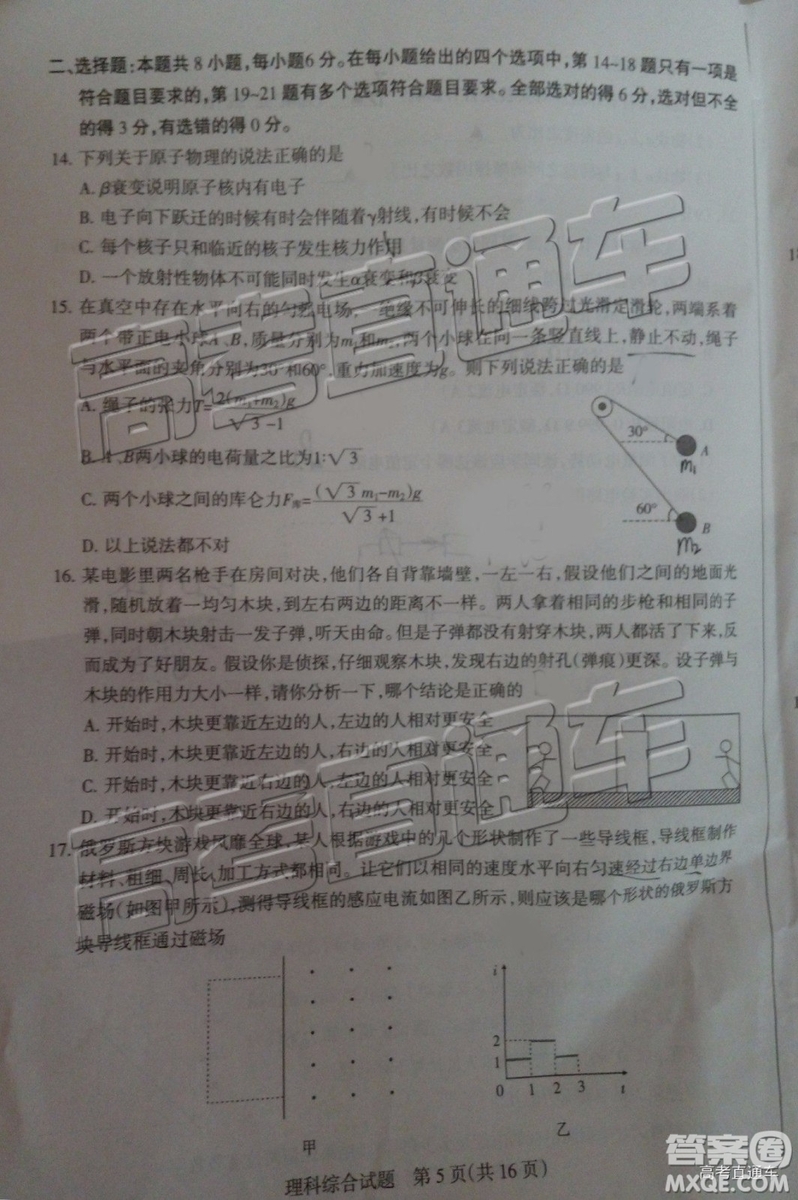 二、选择题:本题共8小题,每小题6分。在每小题给出的四个选项中,第14~18题只有一项是
符合题目要求的,第19~21题有多个选项符合题目要求。全部选对的得6分,选对但不全
的得3分,有选错的得0分。
14. 下列关于原子物理的说法正确的是
A. β衰变说明原子核内有电子
B. 电子向下跃迁的时候有时会伴随着γ射线,有时候不会
C. 每个核子只和临近的核子发生核力作用
D. 一个放射性物体不可能同时发生α衰变和β衰变
15. 在真空中存在水平向右的匀强电场,一绝缘不可伸长的细线跨过光滑定滑轮,两端系着
两个带正电小球A、B,质量分别为m₁和m₂,两个小球在同一条竖直线上,静止不动,绳子
与水平面的夹角分别为30°和60°,重力加速度为g。则下列说法正确的是
A. 绳子的张力T=2(m₁+m₂)g/(√3-1)
B. A、B两小球的电荷量之比为1:√3
C. 两个小球之间的库仑力F库=(√3m₁-m₂)g/(√3+1)
D. 以上说法都不对
30° A
m₁
60° B
m₂
16. 某电影里两名枪手在房间对决,他们各自背靠墙壁,一左一右,假设他们之间的地面光
滑,随机放着一均匀木块,到左右两边的距离不一样。两人拿着相同的步枪和相同的子
弹,同时朝木块射击一发子弹,听天由命。但是子弹都没有射穿木块,两人都活了下来,反
而成为了好朋友。假设你是侦探,仔细观察木块,发现右边的射孔(弹痕)更深。设子弹与
木块的作用力大小一样,请你分析一下,哪个结论是正确的
A. 开始时,木块更靠近左边的人,左边的人相对更安全
B. 开始时,木块更靠近左边的人,右边的人相对更安全
C. 开始时,木块更靠近右边的人,左边的人相对更安全
D. 开始时,木块更靠近右边的人,右边的人相对更安全
17. 俄罗斯方块游戏风靡全球,某人根据游戏中的几个形状制作了一些导线框,导线框制作
材料、粗细、周长、加工方式都相同。让它们以相同的速度水平向右匀速经过右边单边界
磁场(如图甲所示),测得导线框的感应电流如图乙所示,则应该是哪个形状的俄罗斯方
块导线框通过磁场
i
2
1
0 1 2 3 t
甲
乙
理科综合试题 第5页(共16页)
高考直通车
高考直通车
答案圈
高考直通车
MXQE.COM